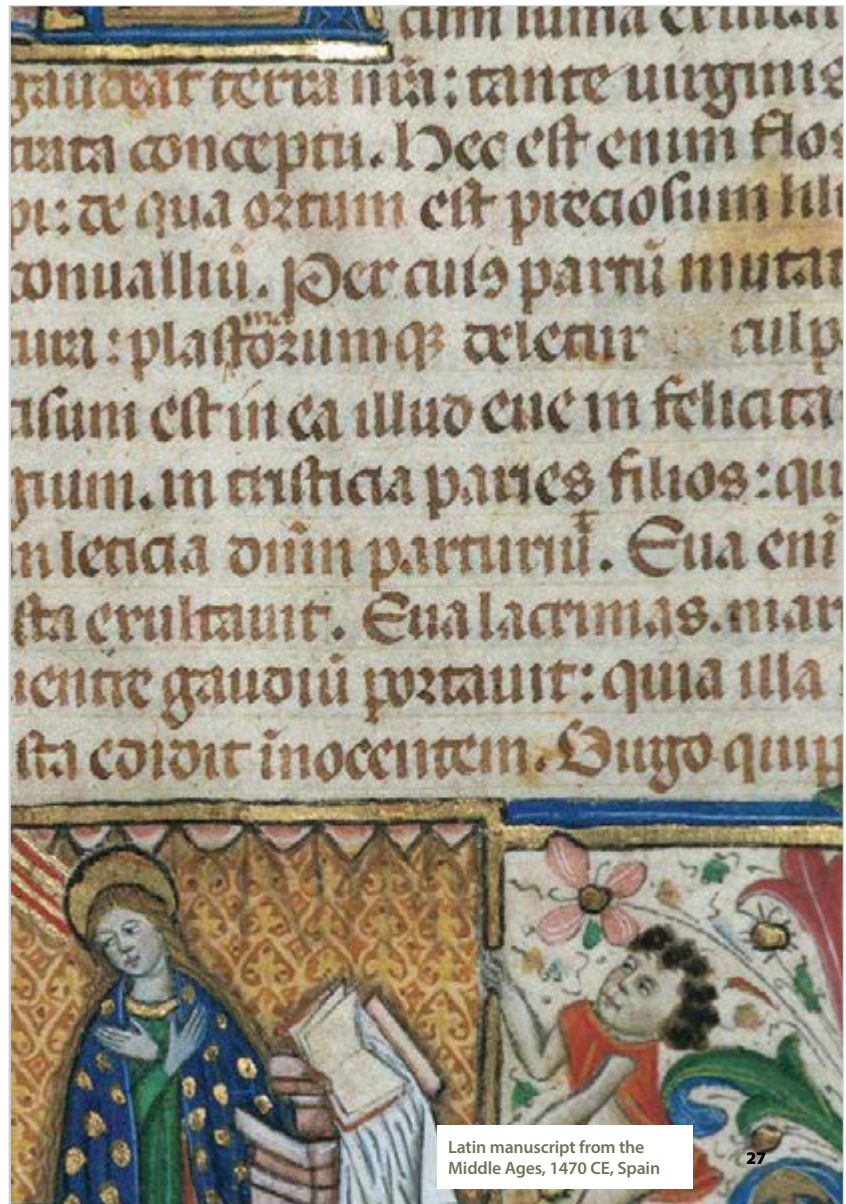 cum
gaudeat terra nr̃a: tante uirginis
trata conceptu. Hec est enim flos
pi: de qua ortum est preciosum lili
conualliū. Per cuiꝰ partū mutat
tura: plastorumqꝫ deletur culp
ma
isum est in ea illud eue in felicita
gium. in tristicia paries filios: qu
in leticia dñm parturiũ. Eua enĩ
sta exultauit. Eua lacrimas. mar
uentre gaudiũ portauit: quia illa
sta edidit ĩnocentem. Uirgo quip
Latin manuscript from the
Middle Ages, 1470 CE, Spain
27